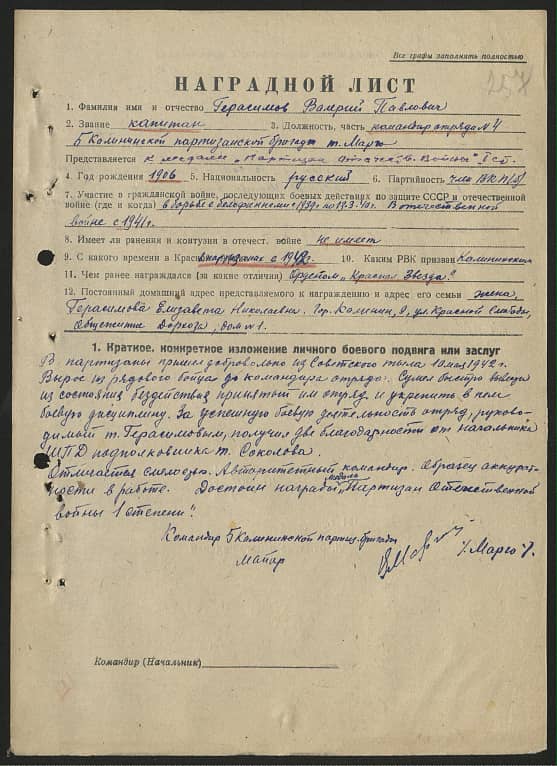 Все графы заполнять полностью
257
НАГРАДНОЙ ЛИСТ
1. Фамилия имя и отчество Герасимов Валерий Павлович
2. Звание капитан 3. Должность, часть командир отряда №4
5 Калининской партизанской бригады т. Марго
Представляется к медали „Партизан Отечеств. Войны" I ст.
4. Год рождения 1906 5. Национальность русский 6. Партийность член ВКП(б)
7. Участие в гражданской войне, последующих боевых действиях по защите СССР и отечественной
войне (где и когда) в борьбе с белофиннами с 1939 г. по В отечественной
войне с 1941 г.
8. Имеет ли ранения и контузии в отечест. войне не имеет
9. С какого времени в Красн 10. Каким РВК призван Калининским
11. Чем ранее награждался (за какие отличия) Орденом „Красная Звезда"
12. Постоянный домашний адрес представляемого к награждению и адрес его семьи жена,
Герасимова Елизавета Николаевна. Гор. Калинин, 9, ул. Красной Слободы,
Общежитие дом №1.
1. Краткое, конкретное изложение личного боевого подвига или заслуг
В партизаны пришел добровольно из Советского тыла 10 мая 1942 г.
Вырос из рядового бойца до командира отряда. Сумел быстро вывести
из состояния бездействия принятый им отряд и укрепить в нем
боевую дисциплину. За успешную боевую деятельность отряд, руково-
димый т. Герасимовым, получил две благодарности от начальника
ШПД подполковника т. Соколова.
Отличается смелостью. Авторитетный командир. Образец аккурат-
ности в работе. Достоин награды медали „Партизан Отечественной
войны 1 степени".
Командир 5 Калининской партиз. бригады
майор /Марго/.
Командир (Начальник)